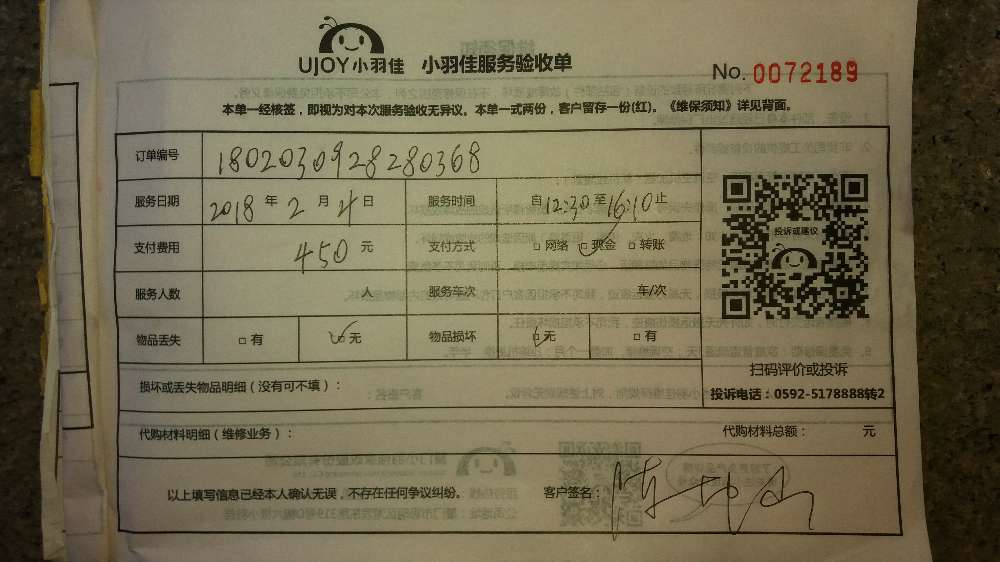 UJOY小羽佳 小羽佳服务验收单
No. 0072189
本单一经核签，即视为对本次服务验收无异议。本单一式两份，客户留存一份(红)。《维保须知》详见背面。
订单编号 1802030928280368
服务日期 2018 年 2 月 4 日 服务时间 自 12:30 至 16:10 止
投诉或建议
支付费用 450 元 支付方式 □ 网络 □ 现金 □ 转账
服务人数 人 服务车次 车/次
物品丢失 □ 有 □ 无 物品损坏 □ 无 □ 有
扫码评价或投诉
损坏或丢失物品明细（没有可不填）： 投诉电话：0592-5178888转2
代购材料明细（维修业务）： 代购材料总额： 元
以上填写信息已经本人确认无误，不存在任何争议纠纷。 客户签名：